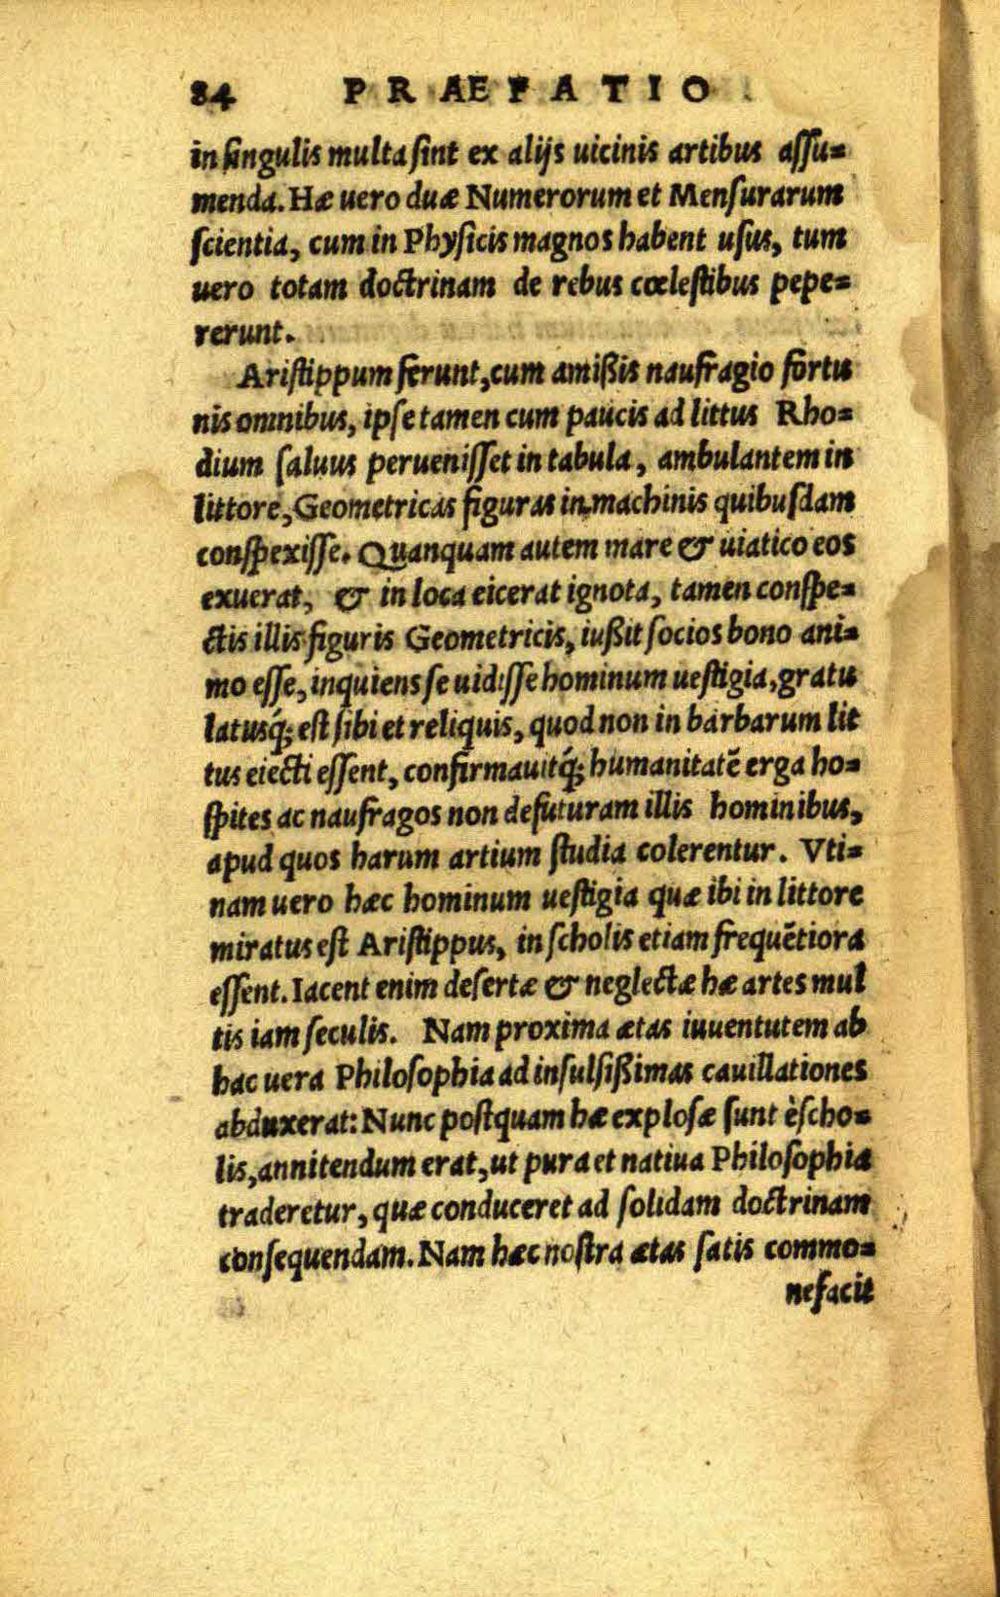 84 PRAEFATIO.
in singulis multa sint ex alijs uicinis artibus assu=
menda. Hæ uero duæ Numerorum et Mensurarum
scientia, cum in Physicis magnos habent usus, tum
uero totam doctrinam de rebus cœlestibus pepe=
rerunt.
Aristippum ferunt, cum amißis naufragio fortu
nis omnibus, ipse tamen cum paucis ad littus Rho=
dium saluus peruenisset in tabula, ambulantem in
littore, Geometricas figuras in machinis quibusdam
conspexisse. Quanquam autem mare & uiatico eos
exuerat, & in loca eicerat ignota, tamen conspe=
ctis illis figuris Geometricis, iußit socios bono ani=
mo esse, inquiens se uidisse hominum uestigia, gratu
latusq́; est sibi et reliquis, quod non in barbarum lit
tus eiecti essent, confirmauitq́; humanitatē erga ho=
spites ac naufragos non defuturam illis hominibus,
apud quos harum artium studia colerentur. Vti=
nam uero hæc hominum uestigia quæ ibi in littore
miratus est Aristippus, in scholis etiam frequētiora
essent. Iacent enim desertæ & neglectæ hæ artes mul
tis iam seculis. Nam proxima ætas iuuentutem ab
hac uera Philosophia ad insulsißimas cauillationes
abduxerat: Nunc postquam hæ explosæ sunt è scho=
lis, annitendum erat, ut pura et natiua Philosophia
traderetur, quæ conduceret ad solidam doctrinam
consequendam. Nam hæc nostra ætas satis commo=
nefacit